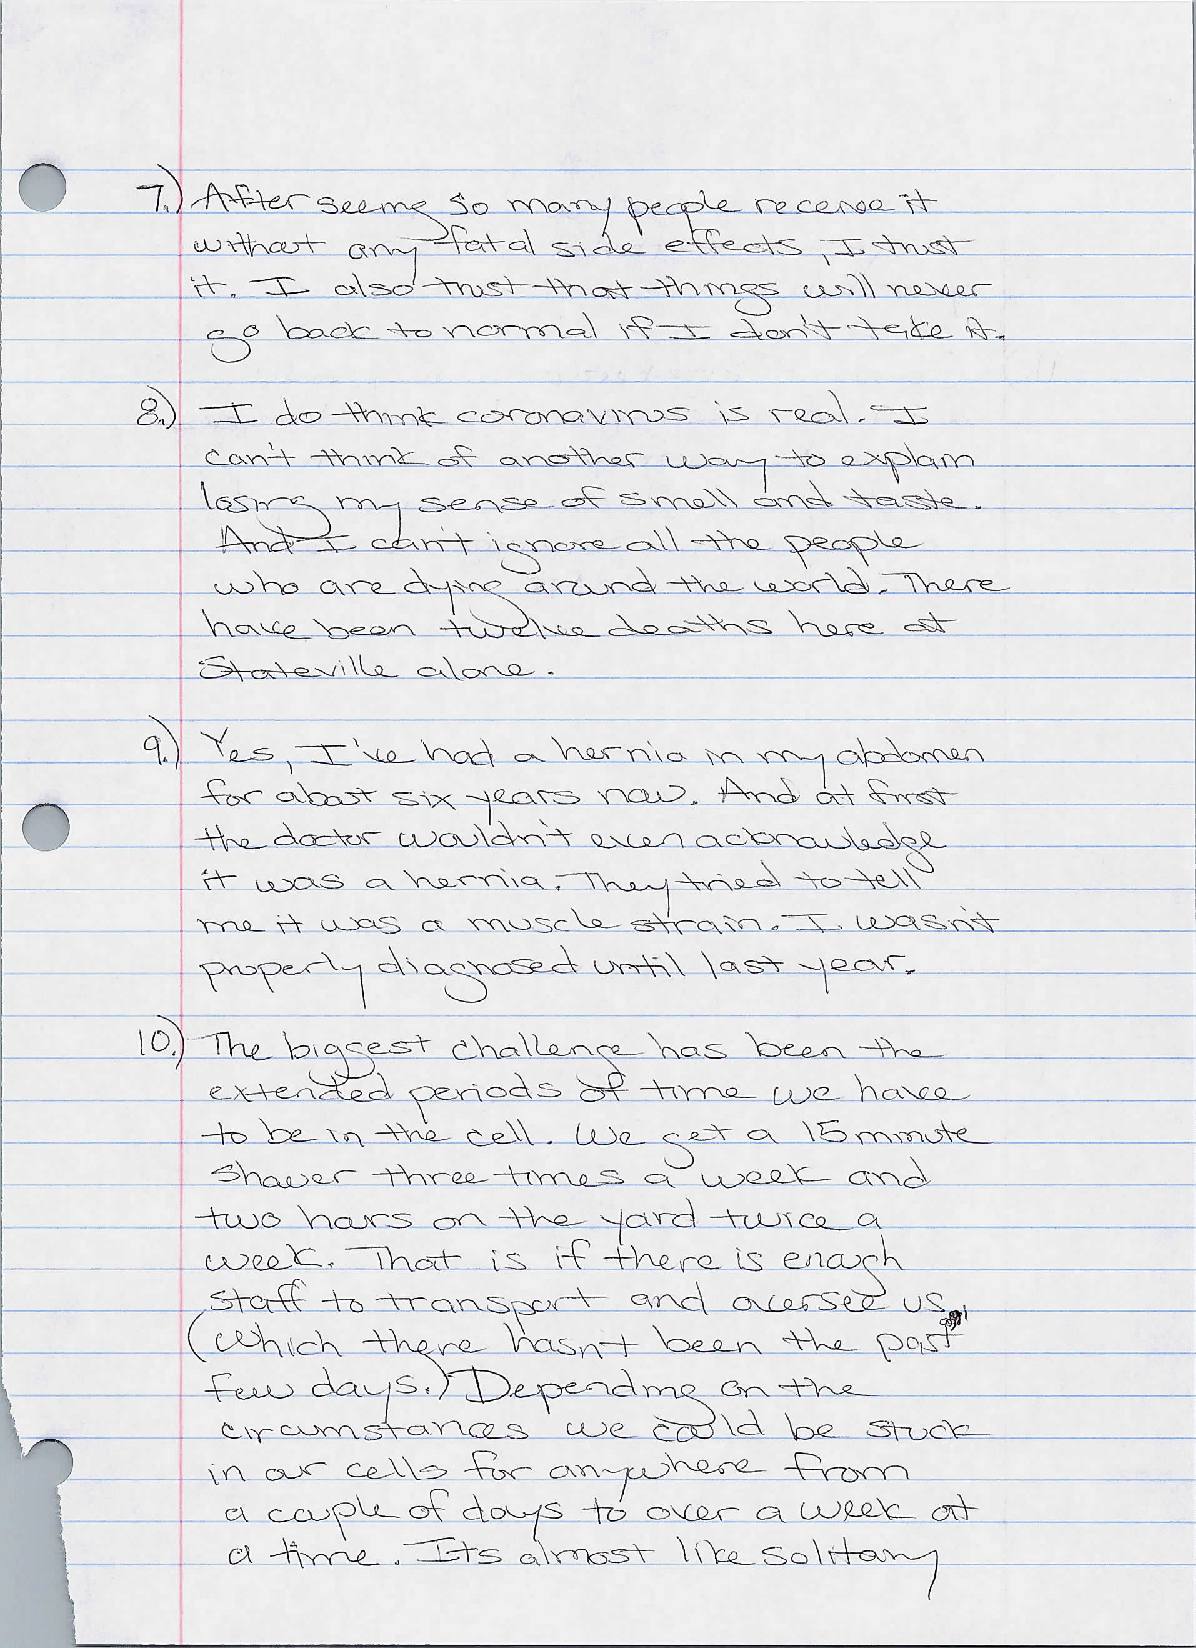 7.) After seeing so many people receive it
without any fatal side effects, I trust
it. I also trust that things will never
go back to normal if I don't take it.
8.) I do think coronavirus is real. I
can't think of another way to explain
losing my sense of smell and taste.
And I can't ignore all the people
who are dying around the world. There
have been twelve deaths here at
Stateville alone.
9.) Yes, I've had a hernia in my abdomen
for about six years now. And at first
the doctor wouldn't even acknowledge
it was a hernia. They tried to tell
me it was a muscle strain. I wasn't
properly diagnosed until last year.
10.) The biggest challenge has been the
extended periods of time we have
to be in the cell. We get a 15 minute
shower three times a week and
two hours on the yard twice a
week. That is if there is enough
staff to transport and oversee us
(which there hasn't been the past
few days.) Depending on the
circumstances we could be stuck
in our cells for anywhere from
a couple of days to over a week at
a time. Its almost like solitary